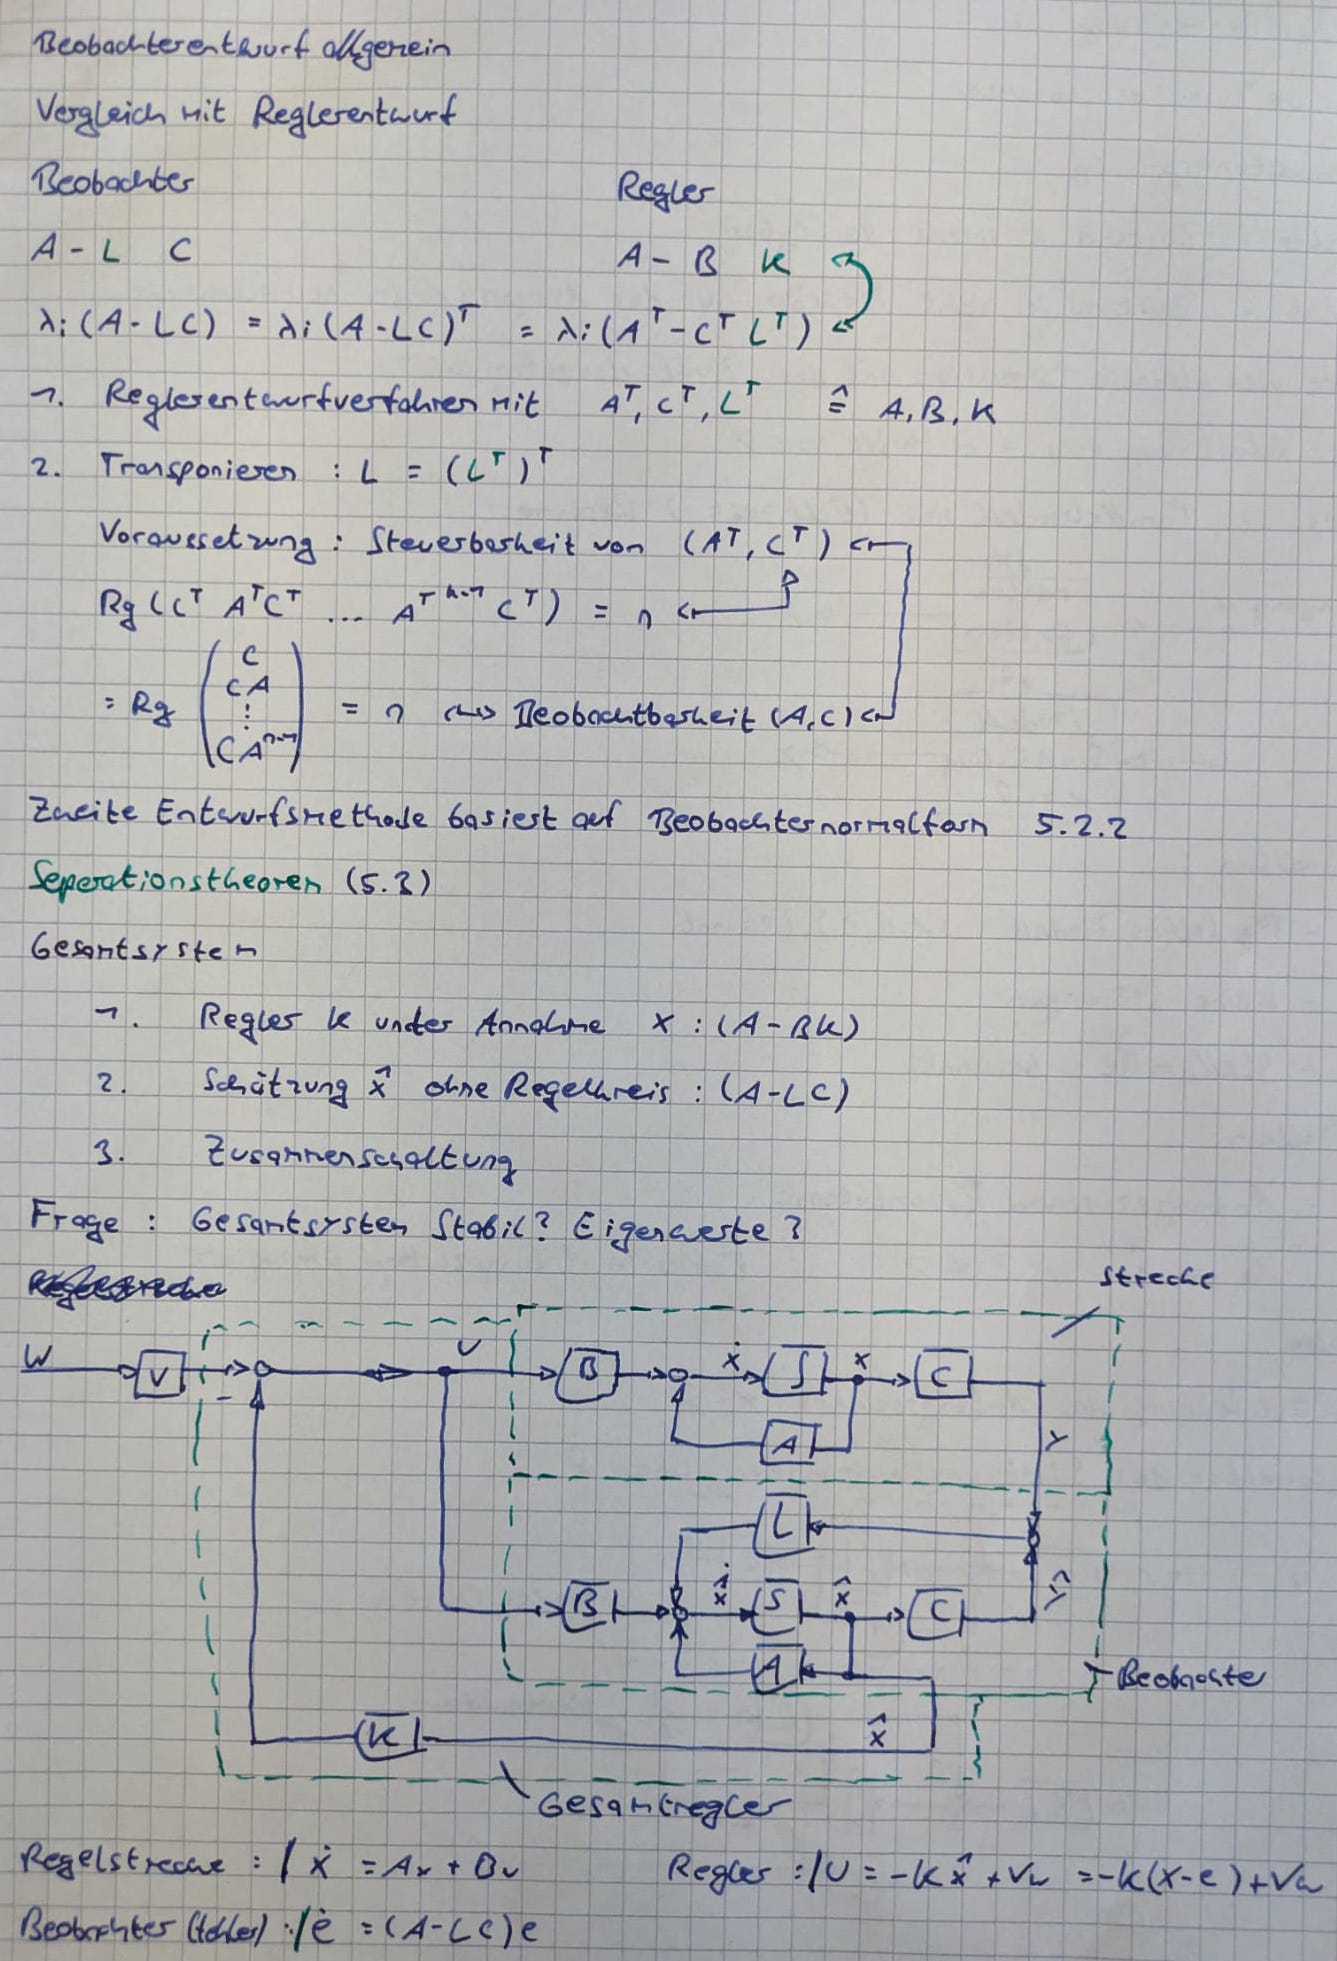 Beobachterentwurf allgemein
Vergleich mit Reglerentwurf
Beobachter Regler
A - L C A - B K
λi (A - LC) = λi (A - LC)ᵀ = λi (Aᵀ - Cᵀ Lᵀ)
1. Reglerentwurfverfahren mit Aᵀ, Cᵀ, Lᵀ ≙ A, B, K
2. Transponieren : L = (Lᵀ)ᵀ
Voraussetzung : Steuerbarkeit von (Aᵀ, Cᵀ)
Rg (Cᵀ AᵀCᵀ ... Aᵀⁿ⁻¹ Cᵀ) = n
= Rg ( C
CA
⋮
CAⁿ⁻¹ ) = n ↔ Beobachtbarkeit (A, C)
Zweite Entwurfsmethode basiert auf Beobachternormalform 5.2.2
Seperationstheorem (5.3)
Gesamtsystem
1. Regler K under Annahme x : (A - BK)
2. Schätzung x̂ ohne Regelkreis : (A - LC)
3. Zusammenschaltung
Frage : Gesamtsystem Stabil? Eigenwerte?
Strecke
W V - U B ẋ ∫ x C
A
Y
L
B x̂̇ S x̂ C Ŷ
A
Beobachter
K x̂
Gesamtregler
Regelstrecke : / ẋ = Ax + Bu Regler : / U = -K x̂ + Vw = -K(x-e) + Vw
Beobachter (fehler) : / ė = (A-LC)e